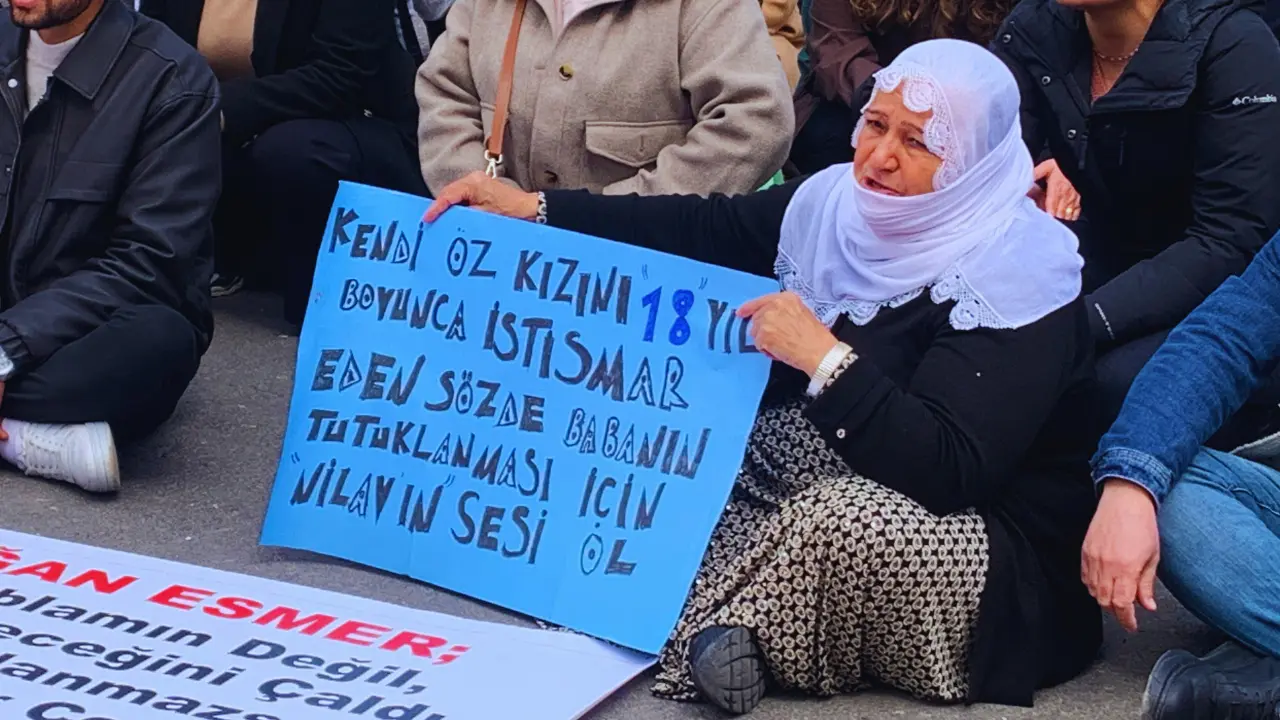 KENDİ ÖZ KIZINI "18" YIL
BOYUNCA İSTİSMAR
EDEN SÖZDE BABANIN
TUTUKLANMASI İÇİN
"NİLAY'IN" SESİ OL
ĞAN ESMER;
blamın Değil,
eceğini Çaldı
lanmaz
Columbia